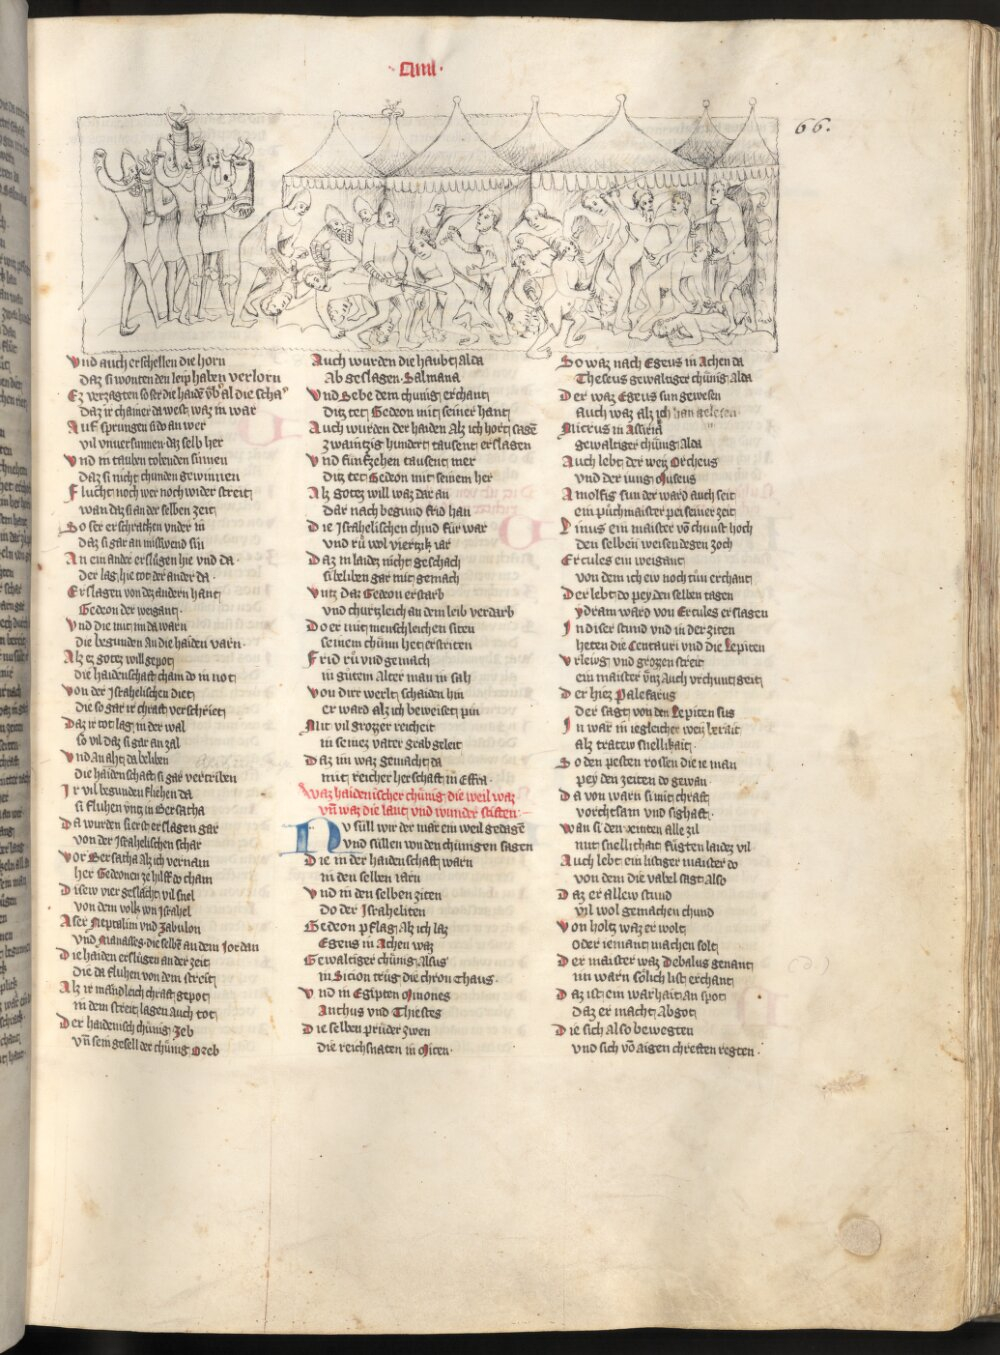 ·Cxviii·
66.
Vnd auch erschellen die horn
daz si wonten den leip haben verlorn
Ez verzagten so ser die haiden vber al die schar
daz ir chainer da west waz in war
Auf sprungen si do an wer
vil vnuersunnen daz selb her
Vnd in tauben tobenden sinnen
daz si nicht chunden gewinnen
Flucht noch wer noch wider streit
wan daz si an der selben zeit
So ser erschrakten vnder in
daz si gar an
An ein ander erslugen hie vnd da
der lag hie tot der ander da·
Erslagen von dez andern hant
Gedeon der weigant·
Vnd die mit im da warn
die begunden an die haiden varn·
Alz ez gotz will gepot
die haidenschaft cham do in not
Von der Israhelischen diet
die so gar ir chraft verschriet
Daz ir tot lag in der wal
so vil daz si gar an zal
Vnd an aht da beliben
die haidenschaft si gar vertriben
Ir vil begunden fliehen da
si fluhen vntz in Bersatha
Da wurden si erst erslagen gar
von der Israhelischen schar
Vor Bersatha alz ich vernam
her Gedeonen ze hilff do cham
Disew vier geslacht vil snel
von dem volk von Israhel
Aser Neptalim vnd Zabulon
vnd Manasses die selben an dem Iordan
Die haiden erslugen an der zeit
die da fluhen von dem streit
Alz ir manleich chraft gepot
in dem streit lagen auch tot
Der haidenisch chunig Zeb
vnd sein gesell der chunig Oreb
Auch wurden die haubt alda
Ab geslagen Salmana
Vnd Sebe dem chunig erchant
ditz tet Gedeon mit seiner hant
Auch wurden der haiden alz ich hort sagen
zwaintzig hundert tausent erslagen
Vnd funfzehen tausent mer
ditz tet Gedeon mit seinem her
Alz gotz will waz dar an
dar nach begund frid han
Die Israhelischen chind fur war
vnd ru wol viertzik iar
Daz in laidez nicht geschach
si beliben gar mit gemach
Vntz daz Gedeon erstarb
vnd churtzleich an dem leib verdarb
Do er mit menschleichen siten
seinem chunn het erstriten
Frid ru vnd gemach
in gutem alter man in sah
Von dirr werlt schaiden hin
er ward alz ich beweiset pin
Mit vil grozzer reicheit
in seinez vater grab geleit
Daz im waz gemacht da
mit reicher herschaft in Effra·
Waz haidenischer chunig die weil waz
vnd waz die laut vnd wunder stiften·
Nv sull wir der mar ein weil gedagen
Vnd sullen von den chunigen sagen
Die in der haidenschaft warn
in den selben iarn
Vnd in den selben ziten
do der Israheliten
Gedeon pflag alz ich laz
Egeus in Achen waz
Gewaltiger chunig Alsus
in Sicion trug die chron Thaus·
Vnd in Egipten Minones
Anthus vnd Thiestes
Die selben pruder zwen
die reichsnaten in Miten·
So waz nach Egeus in Achen da
Theseus gewaltiger chunig alda
Der waz Egeus sun gewesen
auch waz alz ich han gelesen
Micrus in Assirie
gewaltiger chunig alda
Auch lebt der weiz Orcheus
vnd der iung Museus
Amolfis sun der ward auch seit
ein puchmaister pei seiner zeit
Linus ein maister von chunst hoch
den selben weisen degen zoch
Ercules ein weigant
von dem ich ew noch tun erchant
Der lebt do pey den selben tagen
ydram ward von Ercules erslagen
In diser stund vnd in der ziten
heten die Centauri vnd die Lepiten
Vrleug vnd grozzen streit
ein maister vnz auch vrchunt geit
Der hiez Palefatus
der sagt von den Lepiten sus
In war in iegleicher weiz berait
alz tratew snellikait·
So den pesten rossen die ie man
pey den zeiten do gewan·
Da von warn si mit chraft
vorchtsam vnd sighaft·
Wan si den veinten alle zil
mit snellichait fugten laidez vil·
Auch lebt ein listiger maister do
von dem die vabel sagt also
Daz er allew stund
vil wol gemachen chund
Von holtz waz er wolt
oder iemant machen solt
Der maister waz Debalus genant
im warn solich list erchant
Daz ist ein warhait an spot
daz er macht abgot
Die sich also bewegten
vnd sich von aigen chreften regten·